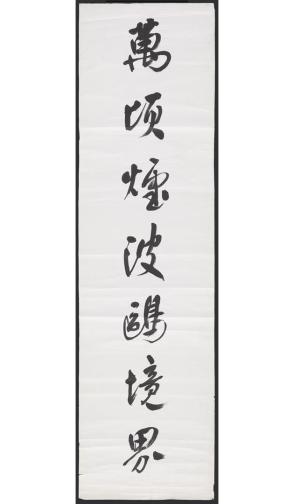 萬頃煙波鷗境界